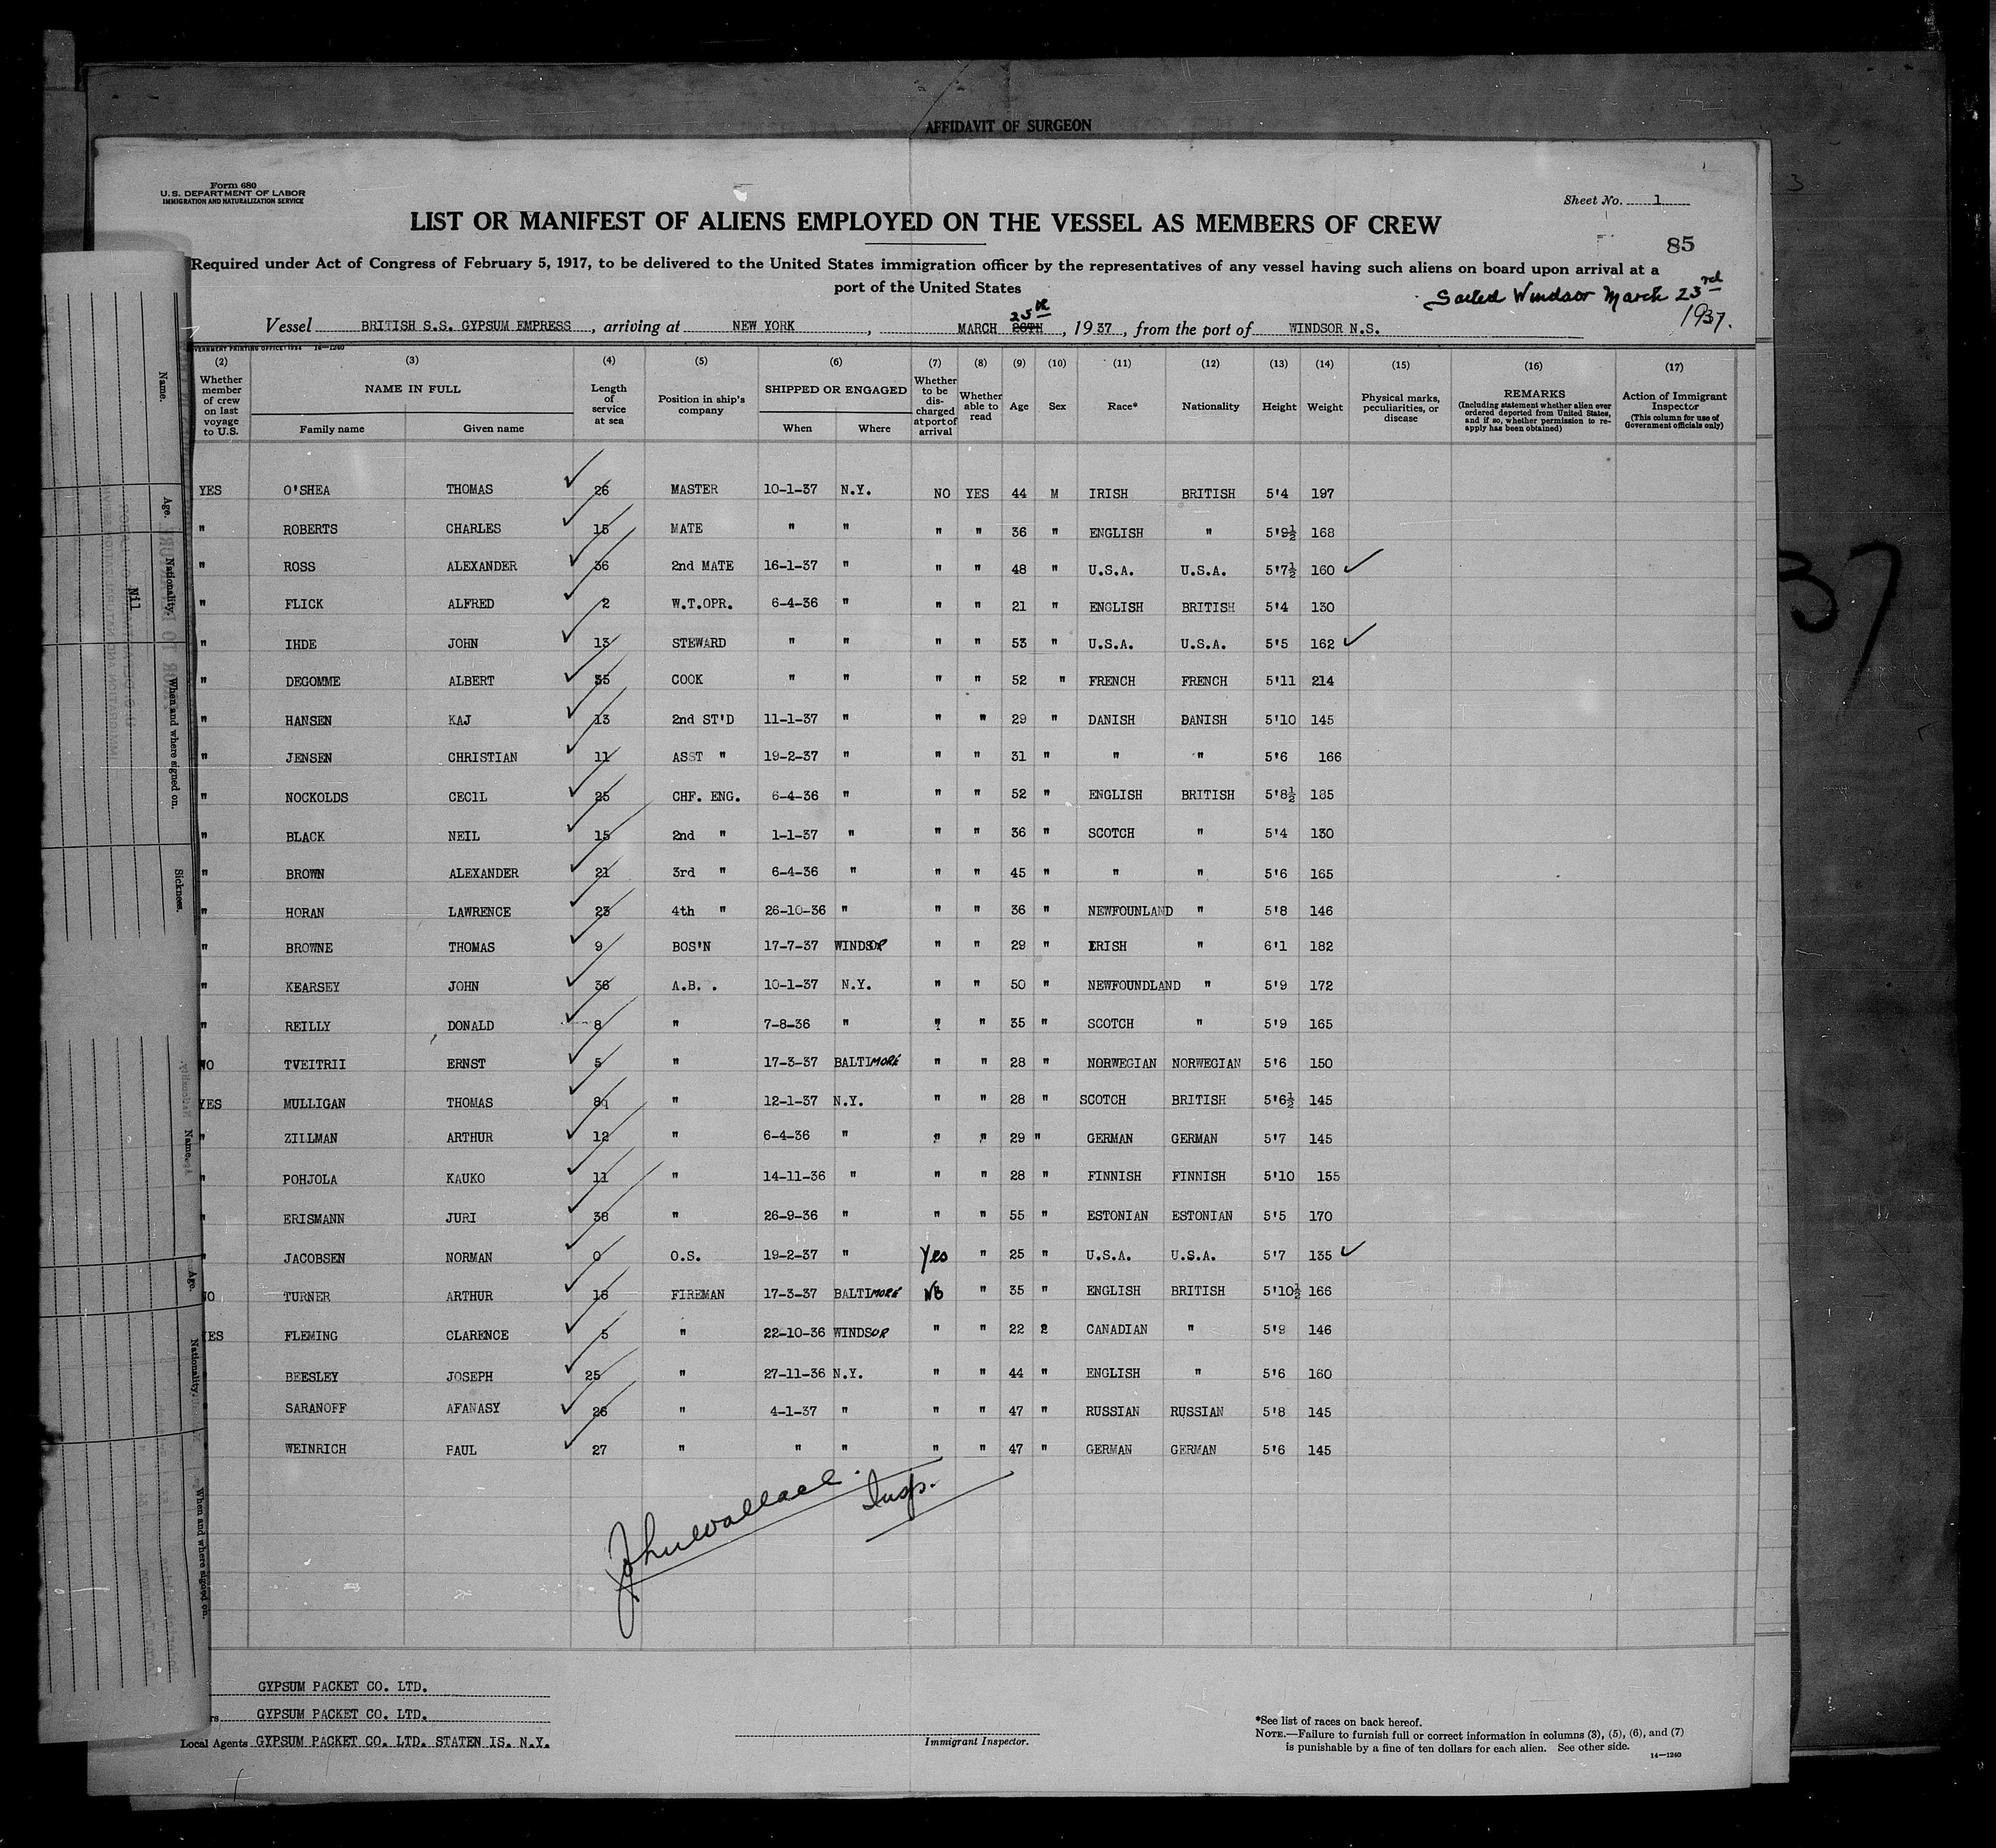 AFFIDAVIT OF SURGEON
Form 680
U.S. DEPARTMENT OF LABOR
IMMIGRATION AND NATURALIZATION SERVICE
Sheet No. 1
LIST OR MANIFEST OF ALIENS EMPLOYED ON THE VESSEL AS MEMBERS OF CREW
85
Required under Act of Congress of February 5, 1917, to be delivered to the United States immigration officer by the representatives of any vessel having such aliens on board upon arrival at a
port of the United States
Sailed Windsor March 23rd
1937.
25th
Vessel BRITISH S.S. GYPSUM EMPRESS, arriving at NEW YORK, MARCH 26TH, 1937, from the port of WINDSOR N.S.
(2) (3) (4) (5) (6) (7) (8) (9) (10) (11) (12) (13) (14) (15) (16) (17)
Whether member of crew on last voyage to U.S. NAME IN FULL Family name Given name Length of service at sea Position in ship's company SHIPPED OR ENGAGED When Where Whether to be discharged at port of arrival Whether able to read Age Sex Race* Nationality Height Weight Physical marks, peculiarities, or disease REMARKS (Including statement whether alien ever ordered deported from United States, and if so, whether permission to re-apply has been obtained) Action of Immigrant Inspector (This column for use of Government officials only)
YES O'SHEA THOMAS 26 MASTER 10-1-37 N.Y. NO YES 44 M IRISH BRITISH 5'4 197
" ROBERTS CHARLES 15 MATE " " " " 36 " ENGLISH " 5'9½ 168
" ROSS ALEXANDER 36 2nd MATE 16-1-37 " " " 48 " U.S.A. U.S.A. 5'7½ 160
" FLICK ALFRED 2 W.T.OPR. 6-4-36 " " " 21 " ENGLISH BRITISH 5'4 130
" IHDE JOHN 13 STEWARD " " " " 53 " U.S.A. U.S.A. 5'5 162
" DEGOMME ALBERT 35 COOK " " " " 52 " FRENCH FRENCH 5'11 214
" HANSEN KAJ 13 2nd ST'D 11-1-37 " " " 29 " DANISH DANISH 5'10 145
" JENSEN CHRISTIAN 11 ASST " 19-2-37 " " " 31 " " " 5'6 166
" NOCKOLDS CECIL 25 CHF. ENG. 6-4-36 " " " 52 " ENGLISH BRITISH 5'8½ 185
" BLACK NEIL 15 2nd " 1-1-37 " " " 36 " SCOTCH " 5'4 130
" BROWN ALEXANDER 21 3rd " 6-4-36 " " " 45 " " " 5'6 165
" HORAN LAWRENCE 23 4th " 26-10-36 " " " 36 " NEWFOUNLAND " 5'8 146
" BROWNE THOMAS 9 BOS'N 17-7-37 WINDSOR " " 29 " ERISH " 6'1 182
" KEARSEY JOHN 36 A.B. . 10-1-37 N.Y. " " 50 " NEWFOUNDLAND " 5'9 172
" REILLY DONALD 8 " 7-8-36 " " " 35 " SCOTCH " 5'9 165
NO TVEITRII ERNST 5 " 17-3-37 BALTIMORE " " 28 " NORWEGIAN NORWEGIAN 5'6 150
YES MULLIGAN THOMAS 8 " 12-1-37 N.Y. " " 28 " SCOTCH BRITISH 5'6½ 145
" ZILLMAN ARTHUR 12 " 6-4-36 " " " 29 " GERMAN GERMAN 5'7 145
" POHJOLA KAUKO 11 " 14-11-36 " " " 28 " FINNISH FINNISH 5'10 155
" ERISMANN JURI 38 " 26-9-36 " " " 55 " ESTONIAN ESTONIAN 5'5 170
" JACOBSEN NORMAN 0 O.S. 19-2-37 " Yes " 25 " U.S.A. U.S.A. 5'7 135
NO TURNER ARTHUR FIREMAN 17-3-37 BALTIMORE No " 35 " ENGLISH BRITISH 5'10½ 166
YES FLEMING CLARENCE 5 " 22-10-36 WINDSOR " " 22 2 CANADIAN " 5'9 146
BEESLEY JOSEPH 25 " 27-11-36 N.Y. " " 44 " ENGLISH " 5'6 160
SARANOFF AFANASY 26 " 4-1-37 " " " 47 " RUSSIAN RUSSIAN 5'8 145
WEINRICH PAUL 27 " " " " " 47 " GERMAN GERMAN 5'6 145
John Wallace. Insp.
GYPSUM PACKET CO. LTD.
GYPSUM PACKET CO. LTD.
Local Agents GYPSUM PACKET CO. LTD. STATEN IS. N.Y.
Immigrant Inspector.
*See list of races on back hereof.
NOTE.—Failure to furnish full or correct information in columns (3), (5), (6), and (7)
is punishable by a fine of ten dollars for each alien. See other side.
14—1240
Name.
Age.
Nationality.
Nil
When and where signed on.
Sickness.
Name.
Age.
Nationality.
When and where signed on.
37